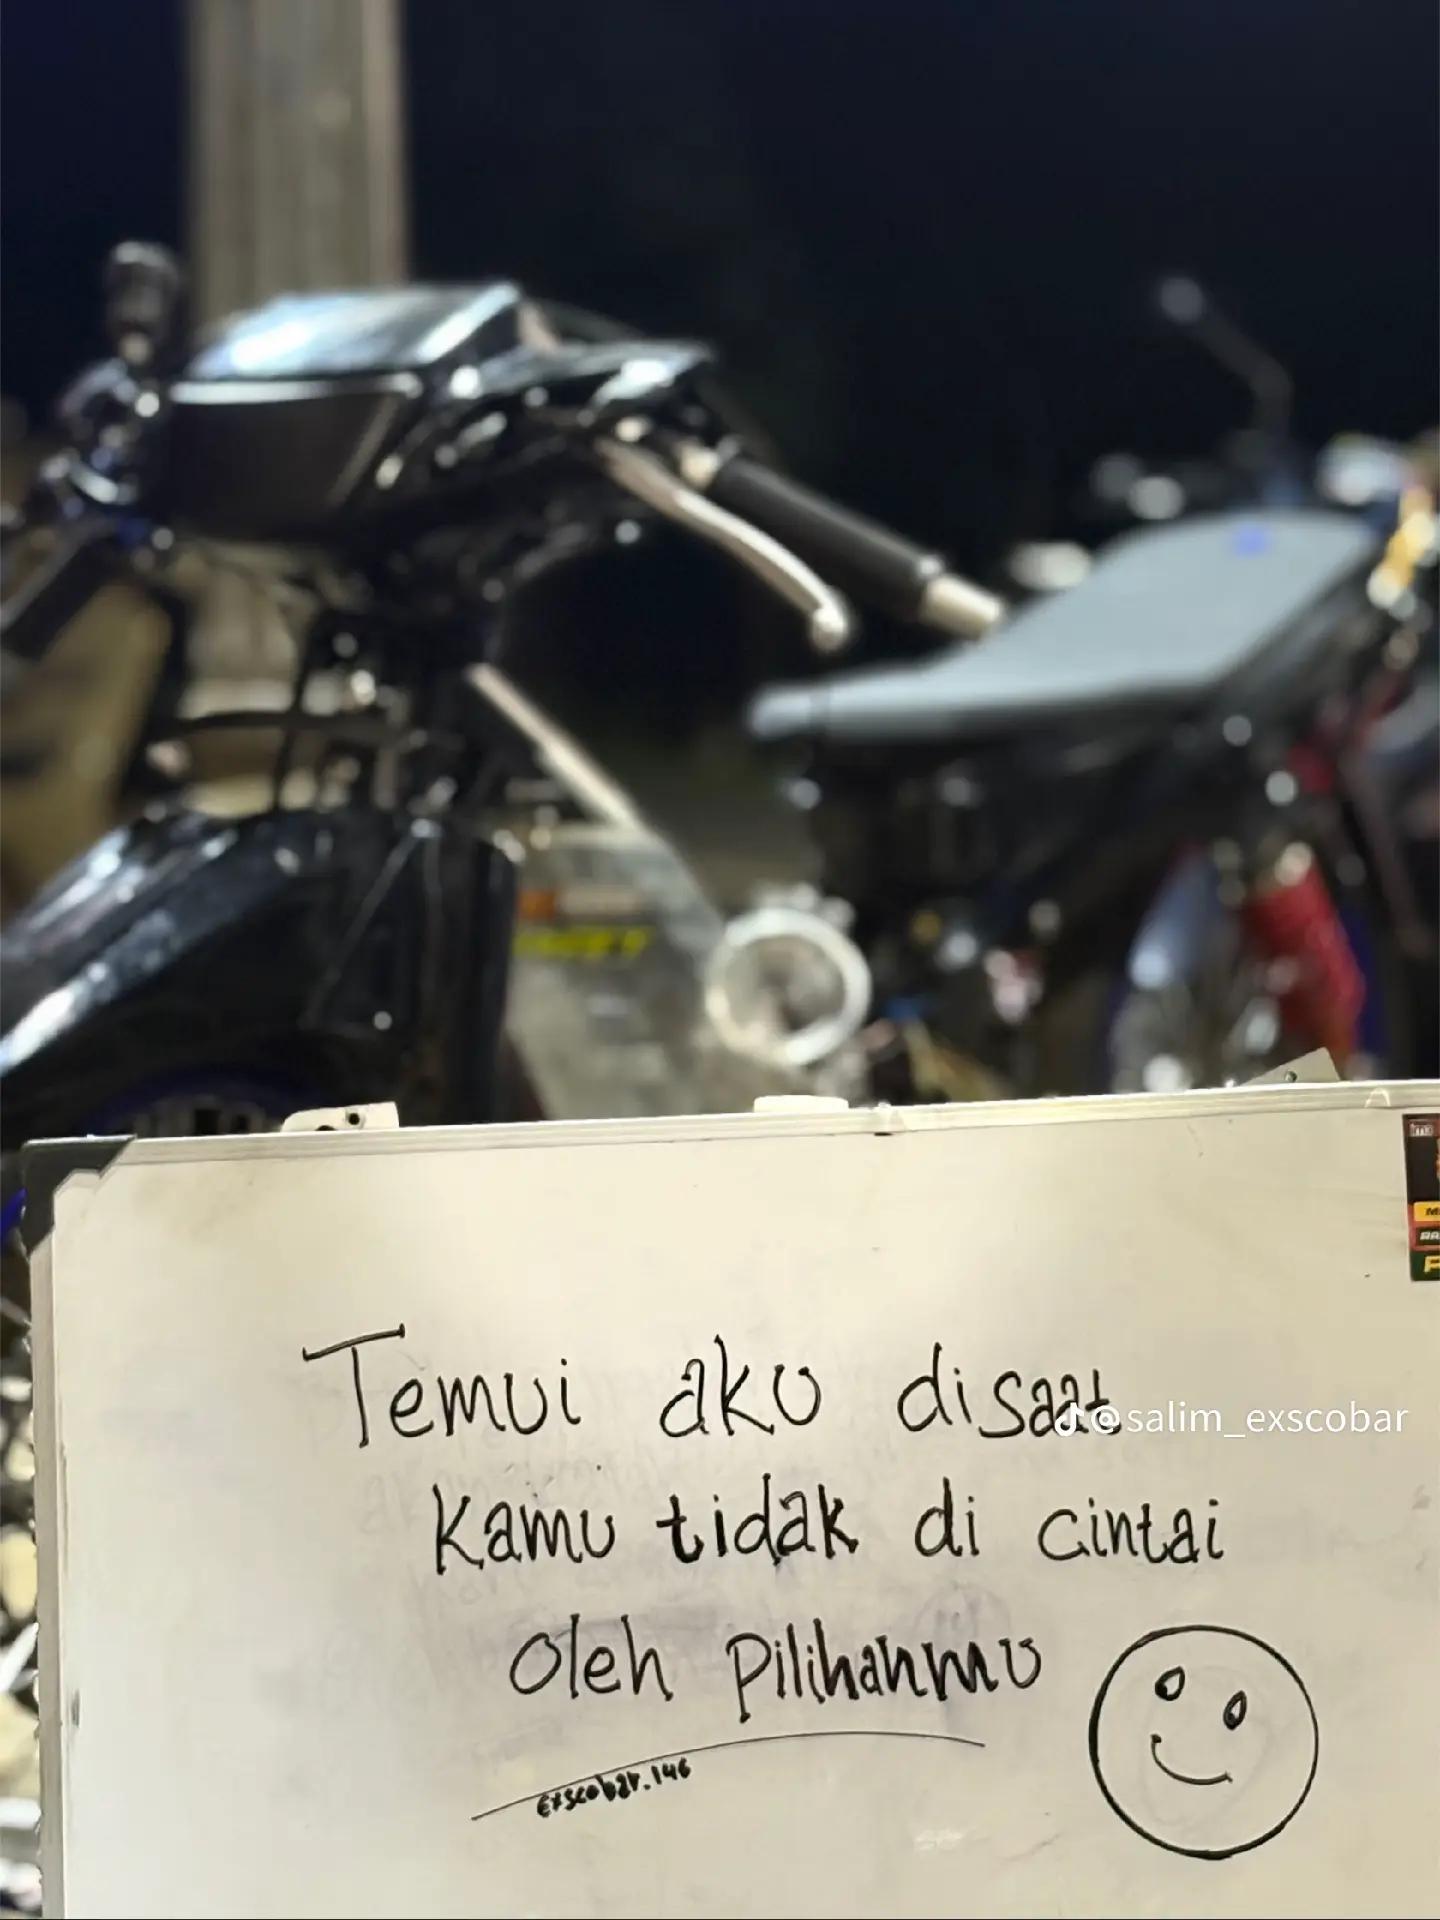 im3
Temui aku disaat
@salim_exscobar
Kamu tidak di cintai
oleh pilihanmu
exscobar.146